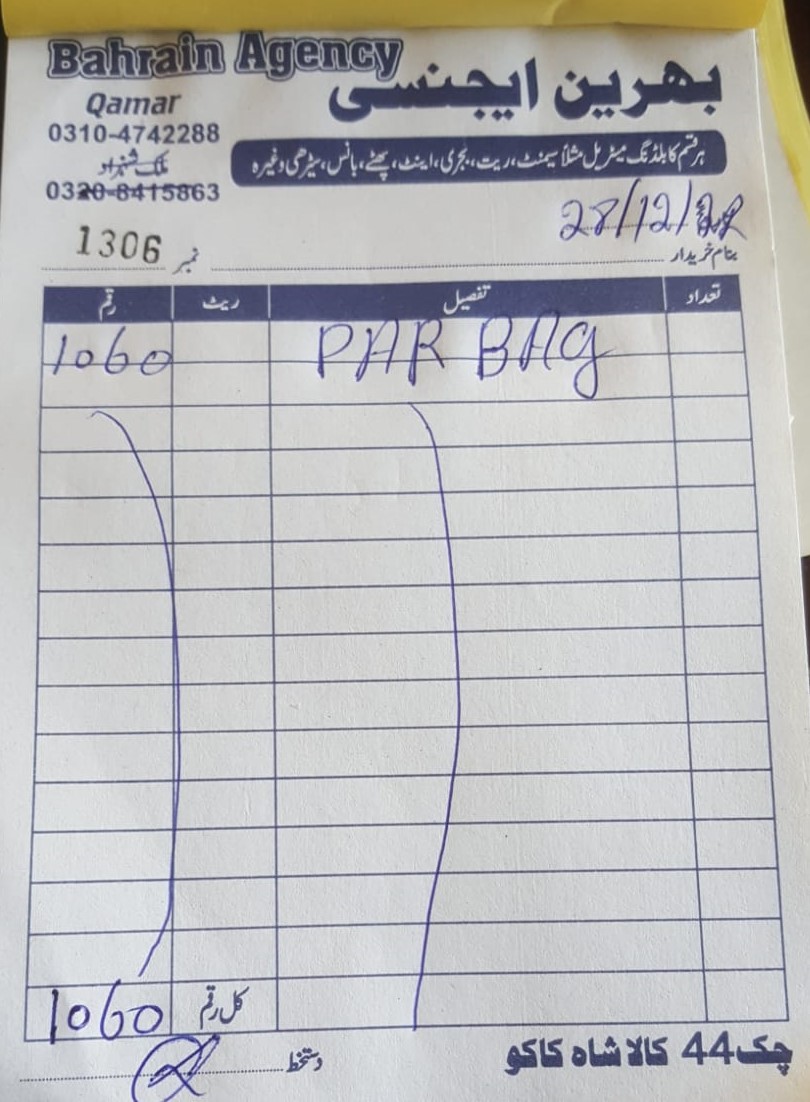 Bahrain Agency
بھرین ایجنسی
Qamar
0310-4742288
ملک شہزاد
0320-8415863
ہر قسم کا بلڈنگ میٹریل مثلاً سیمنٹ، ریت، بجری، اینٹ، پھٹے، بانس، سیڑھی وغیرہ
28/12/22
بنام خریدار
نمبر 1306
تعداد تفصیل ریٹ رقم
PAR BAG 1060
کل رقم 1060
دستخط
چک 44 کالا شاہ کاکو